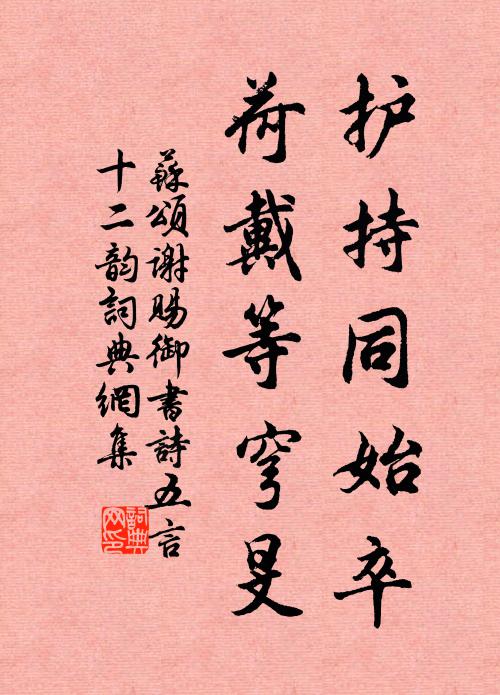 护持同始卒
荷戴等穹旻
蘇頌谢賜御書詩五言
十二韵詞典網集
詞典
网印